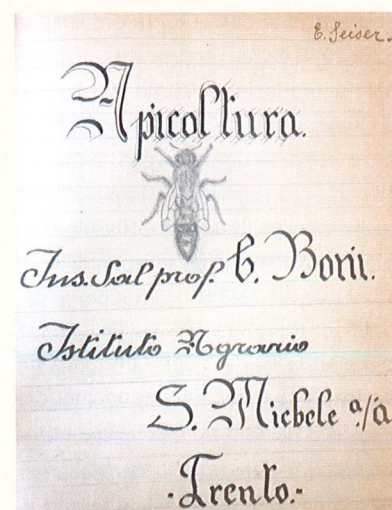 E. Seiser.
Apicoltura.
Ins. dal prof. C. Boni.
Istituto Agrario
S. Michele a/a
·Trento.-